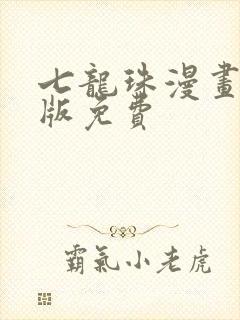 七龍珠漫畫
版免費
霸氣小老虎